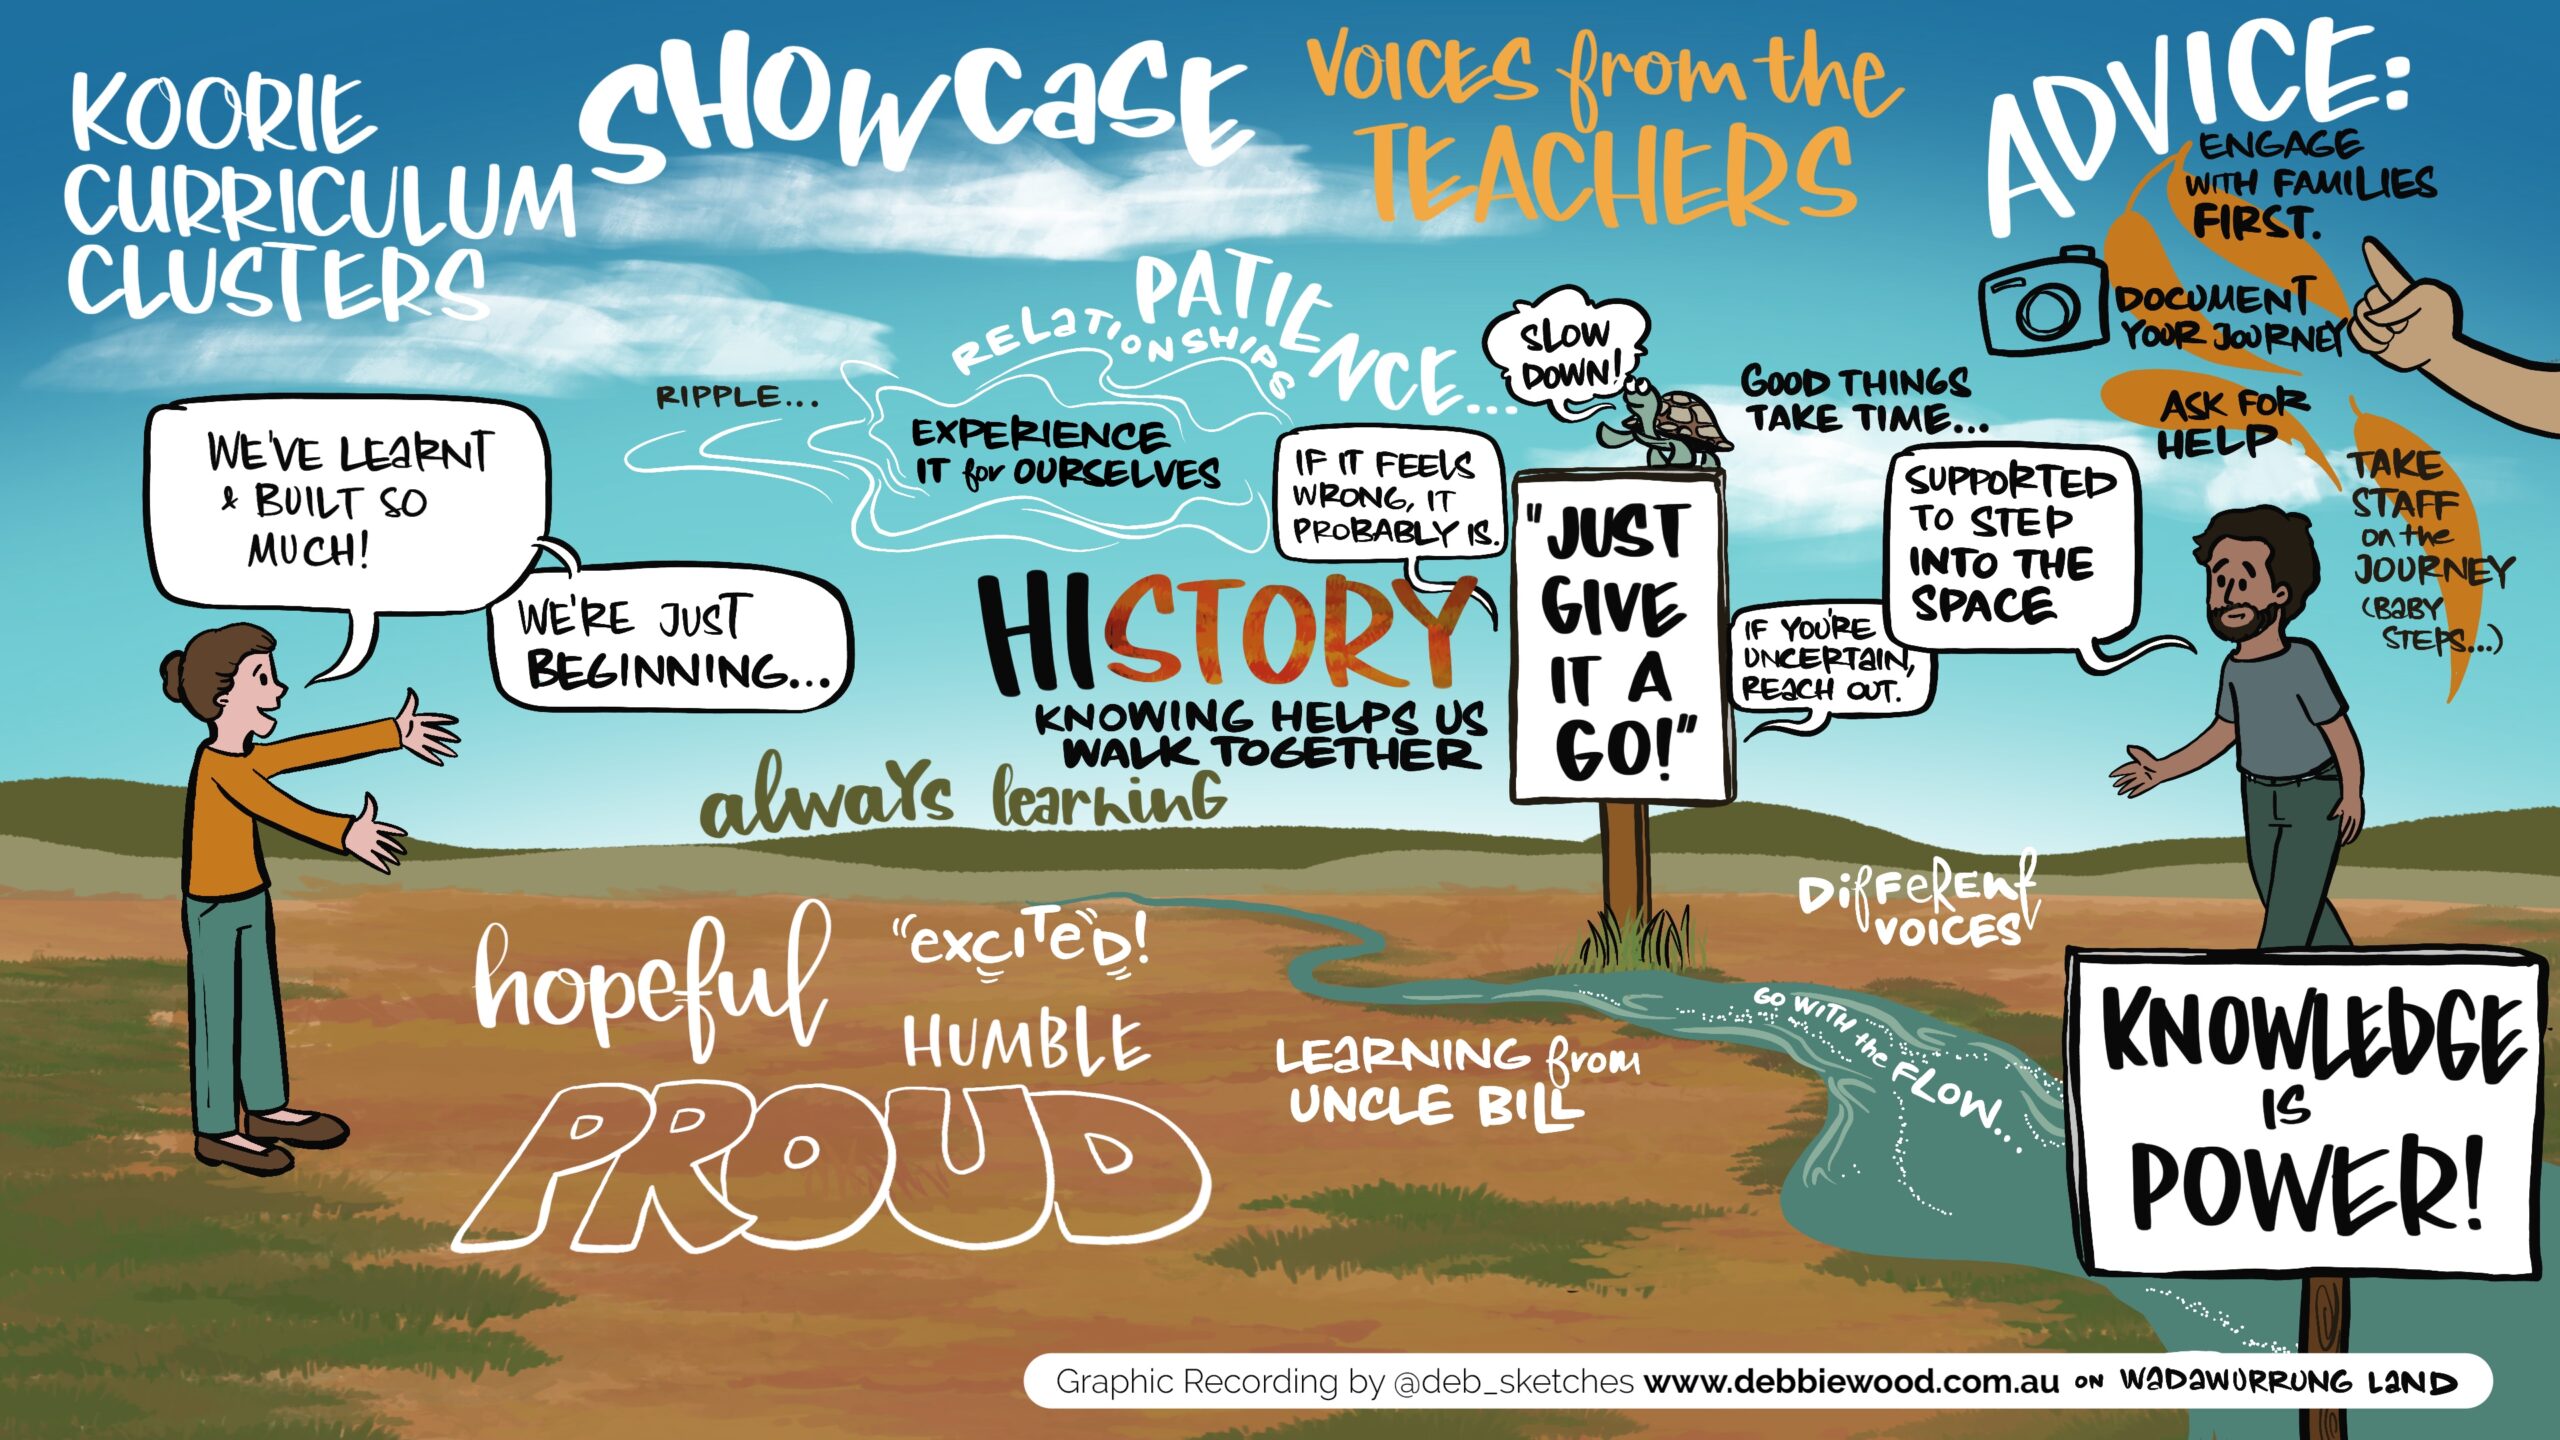 KOORIE
CURRICULUM
CLUSTERS
SHOWCASE
VOICES from the
TEACHERS
ADVICE:
ENGAGE
WITH FAMILIES
FIRST.
DOCUMENT
YOUR JOURNEY
ASK FOR
HELP
TAKE
STAFF
on the
JOURNEY
(BABY
STEPS...)
WE'VE LEARNT
& BUILT SO
MUCH!
WE'RE JUST
BEGINNING...
RIPPLE...
RELATIONSHIPS
PATIENCE...
EXPERIENCE
IT for OURSELVES
SLOW
DOWN!
GOOD THINGS
TAKE TIME...
IF IT FEELS
WRONG, IT
PROBABLY IS.
"JUST
GIVE
IT A
GO!"
SUPPORTED
TO STEP
INTO THE
SPACE
IF YOU'RE
UNCERTAIN,
REACH OUT.
HISTORY
KNOWING HELPS US
WALK TOGETHER
always learning
hopeful
"excited"!
HUMBLE
PROUD
LEARNING from
UNCLE BILL
DIFFERENT
VOICES
GO WITH the FLOW...
KNOWLEDGE
IS
POWER!
Graphic Recording by @deb_sketches www.debbiewood.com.au ON WADAWURRUNG LAND